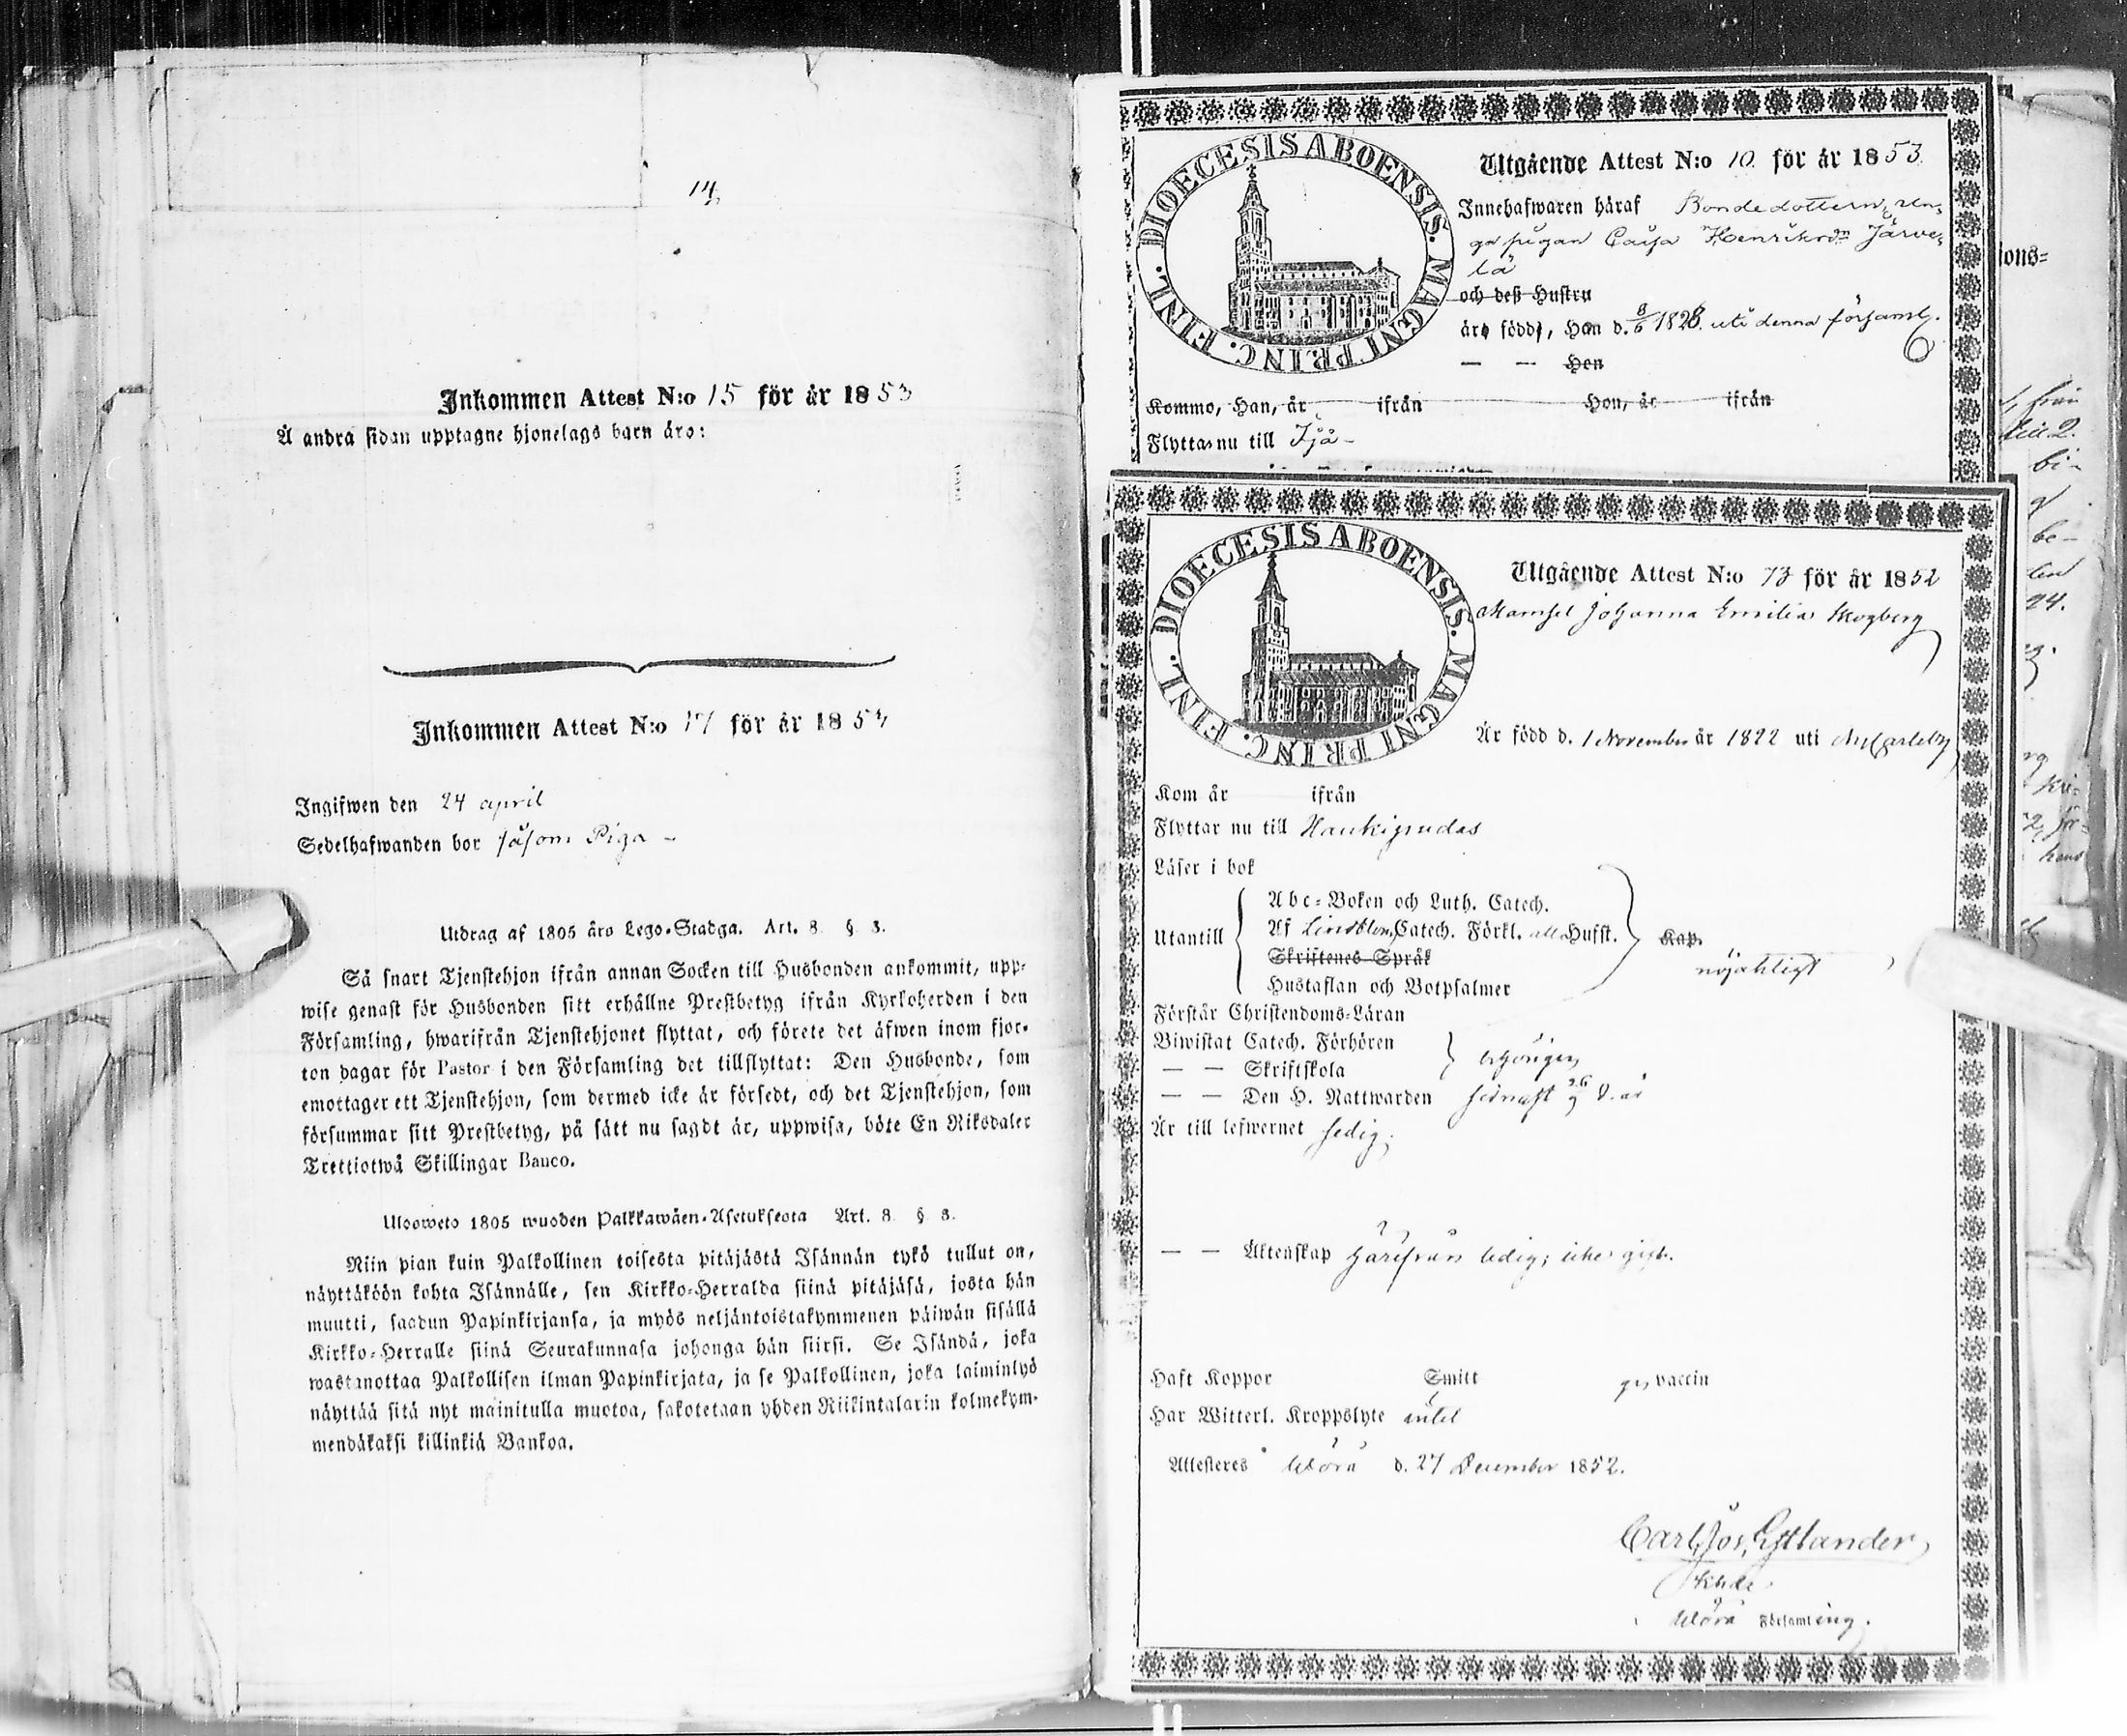 14
Inkommen Attest N:o 15 för år 1853
Å andra sidan upptagne hjonelags barn äro:
Inkommen Attest N:o 17 för år 185
Ingifwen den 24 april
Sedelhafwanden bor såsom Piga -
Utdrag af 1805 års Lego-Stadga. Art. 8. § 3.
Så snart Tjenstehjon ifrån annan Socken till Husbonden ankommit, upp-
wise genast för Husbonden sitt erhållne Prestbetyg ifrån Kyrkoherden i den
Församling, hwarifrån Tjenstehjonet flyttat, och förete det äfwen inom fjor-
ton dagar för Pastor i den Församling det tillflyttat: Den Husbonde, som
emottager ett Tjenstehjon, som dermed icke är försedt, och det Tjenstehjon, som
försummar sitt Prestbetyg, på sätt nu sagdt är, uppwisa, böte En Riksdaler
Trettiotwå Skillingar Banco.
Ulosweto 1805 wuoden Palkkawäen-Asetuksesta Art. 8. § 3.
Niin pian kuin Palkollinen toisesta pitäjästä Isännän tykö tullut on,
näyttäköön kohta Isännälle, sen Kirkko-Herralda siinä pitäjäsä, josta hän
muutti, saadun Papinkirjansa, ja myös neljäntoistakymmenen päiwän sisällä
Kirkko-Herralle siinä Seurakunnasa johonga hän siirsi. Se Isändä, joka
wastanottaa Palkollisen ilman Papinkirjata, ja se Palkollinen, joka laiminlyö
näyttää sitä nyt mainitulla muotoa, sakotetaan yhden Riikintalarin kolmekym-
mendäkaksi killinkiä Bankoa.
DIOECESIS ABOENSIS. MAGNI PRINC. FINL.
Utgående Attest N:o 10. för år 1853.
Innehafwaren häraf Bondedottern, un-
ga pigan Caisa Henriksdr Järve-
lä
och deß Hustru
äro född, Han d. 8/6 1828. uti denna församl.
— — Hon
Kommo, Han, år ifrån Hon, år ifrån
Flyttas nu till Ijå -
DIOECESIS ABOENSIS. MAGNI PRINC. FINL.
Utgående Attest N:o 73 för år 1852
Mamsel Johanna Emilia Skogberg
Är född d. 1 November år 1822 uti Nycarleby
Kom år ifrån
Flyttar nu till Haukipudas
Läser i bok
Utantill
Abc-Boken och Luth. Catech.
Af Lindblom, Catech. Förkl. all Hufst.
Skriftenes Språk
Hustaflan och Botpsalmer
Kap.
nöjaktigt
Förstår Christendoms-Läran
Biwistat Catech. Förhören
— — Skriftskola
— — Den H. Nattwarden sednast 26/9 d. år
Är till lefwernet sedig.
— — Äktenskap härifrån ledig; icke gift.
Haft Koppor Smitt vaccin
Har Witterl. Kroppslyte intet
Attesteres Wörå d. 27 December 1852.
Carl Jos.
Khde
Wörå Församling.